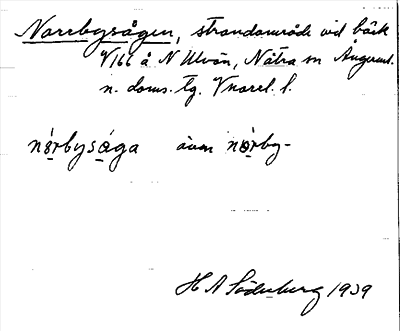 Norrbysågen, strandområde vid bäck
V166 å N Ulvön, Nätra sn Ångerml.
n. doms. tg. Vnorrl. l.
nǫ́rbysǫ́ga även nǫ́rby-
H A Söderberg 1939